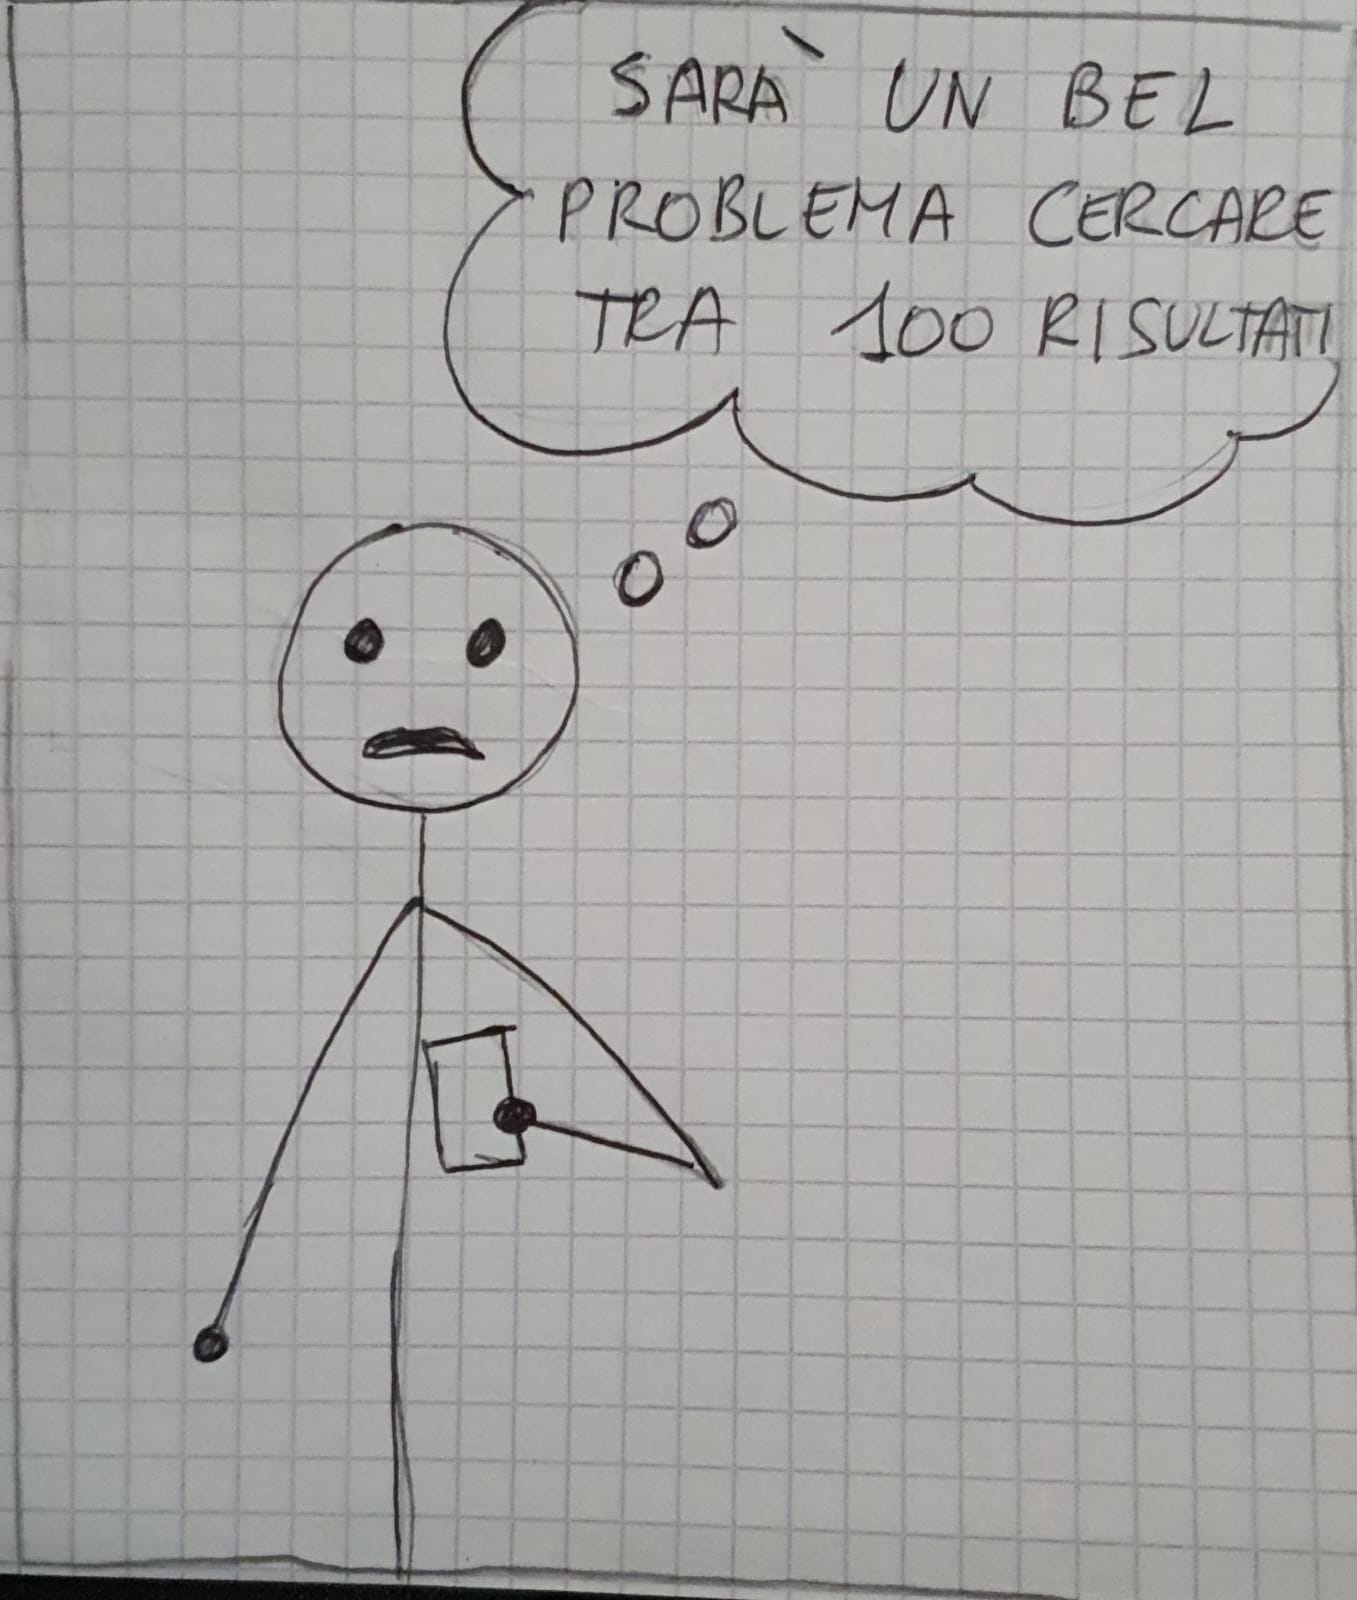 SARÀ UN BEL
PROBLEMA CERCARE
TRA 100 RISULTATI